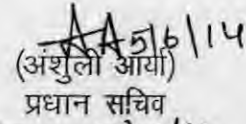 5/6/14
(अंशुली आर्या)
प्रधान सचिव